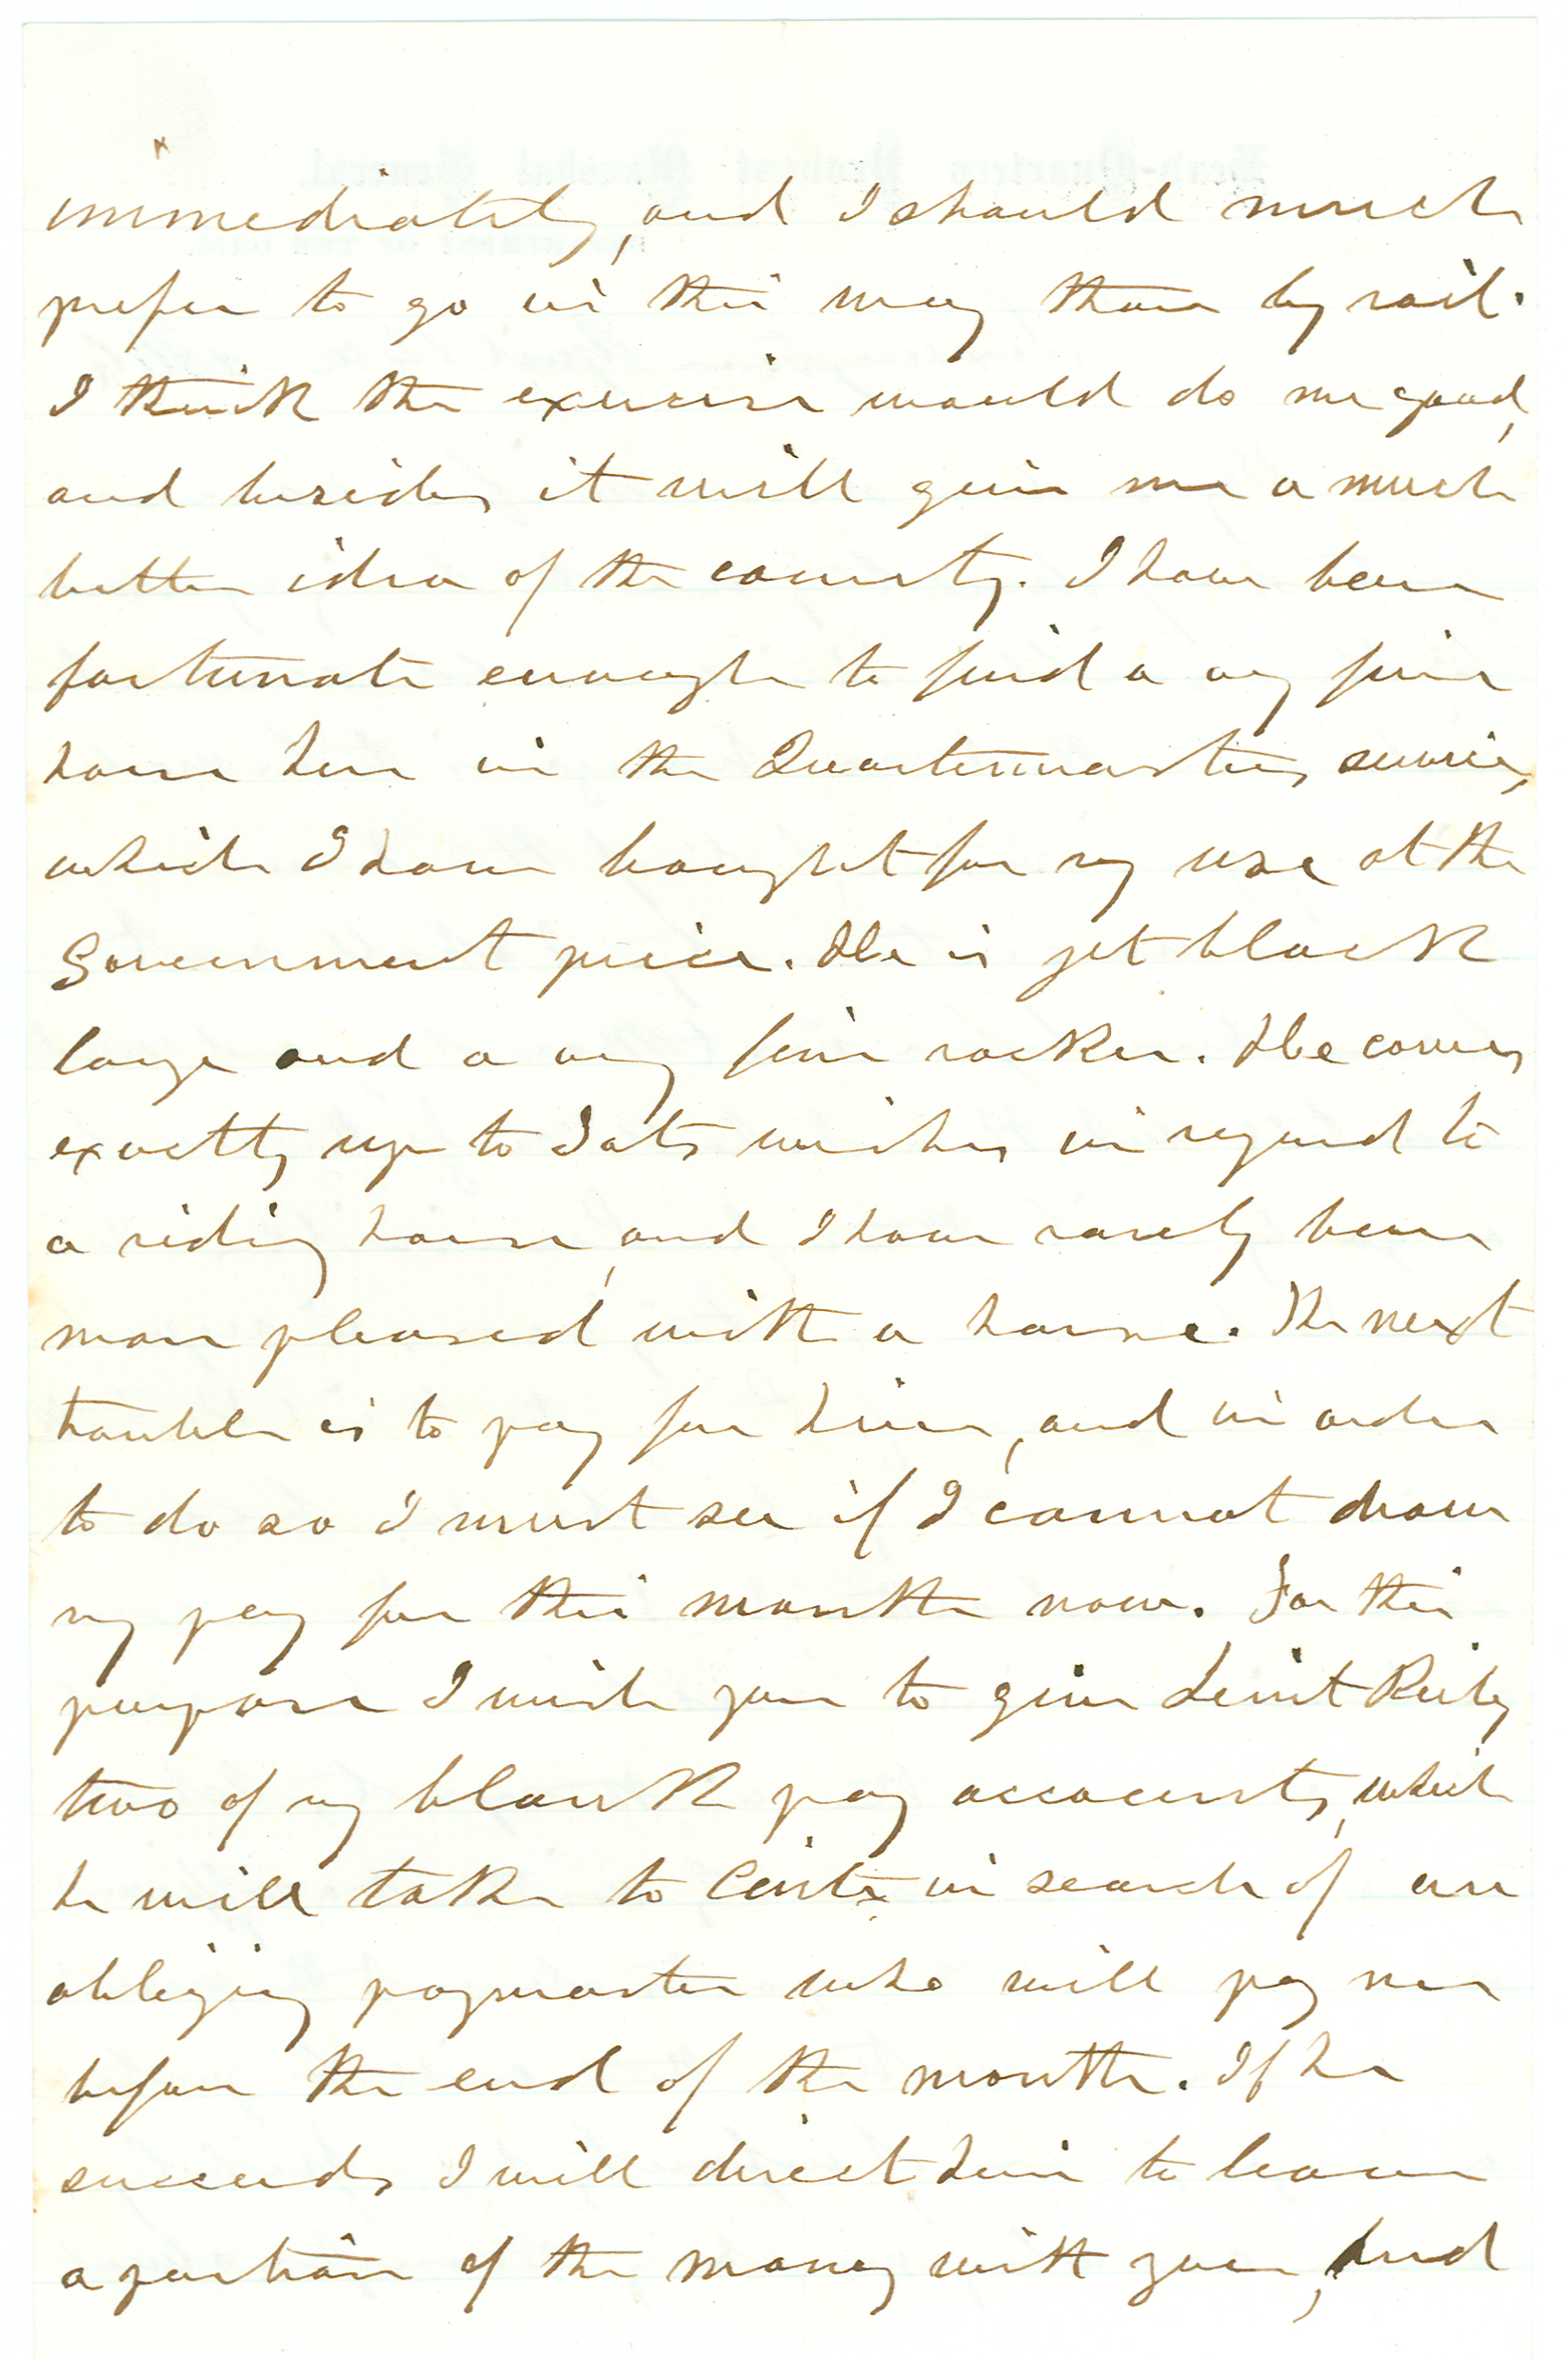 immediately, and I should much
prefer to go in this way than by rail.
I think the exercise would do me good,
and besides it will give me a much
better idea of the country. I have been
fortunate enough to find a very fine
horse here in the Quartermasters service,
which I have bought for my use at the
Government price. He is jet black
large and a very fine racker. He comes
exactly up to Pats wishes in regard to
a riding horse, and I have rarely been
more pleased with a horse. The next
trouble is to pay for him, and in order
to do so I must see if I cannot draw
my pay for this month now. For this
purpose I wish you to give Lieut Reily
two of my blank pay accounts, which
he will take to Cinti in search of an
obliging paymaster who will pay me
before the end of the month. If he
succeeds I will direct him to leave
a portion of the money with you, and